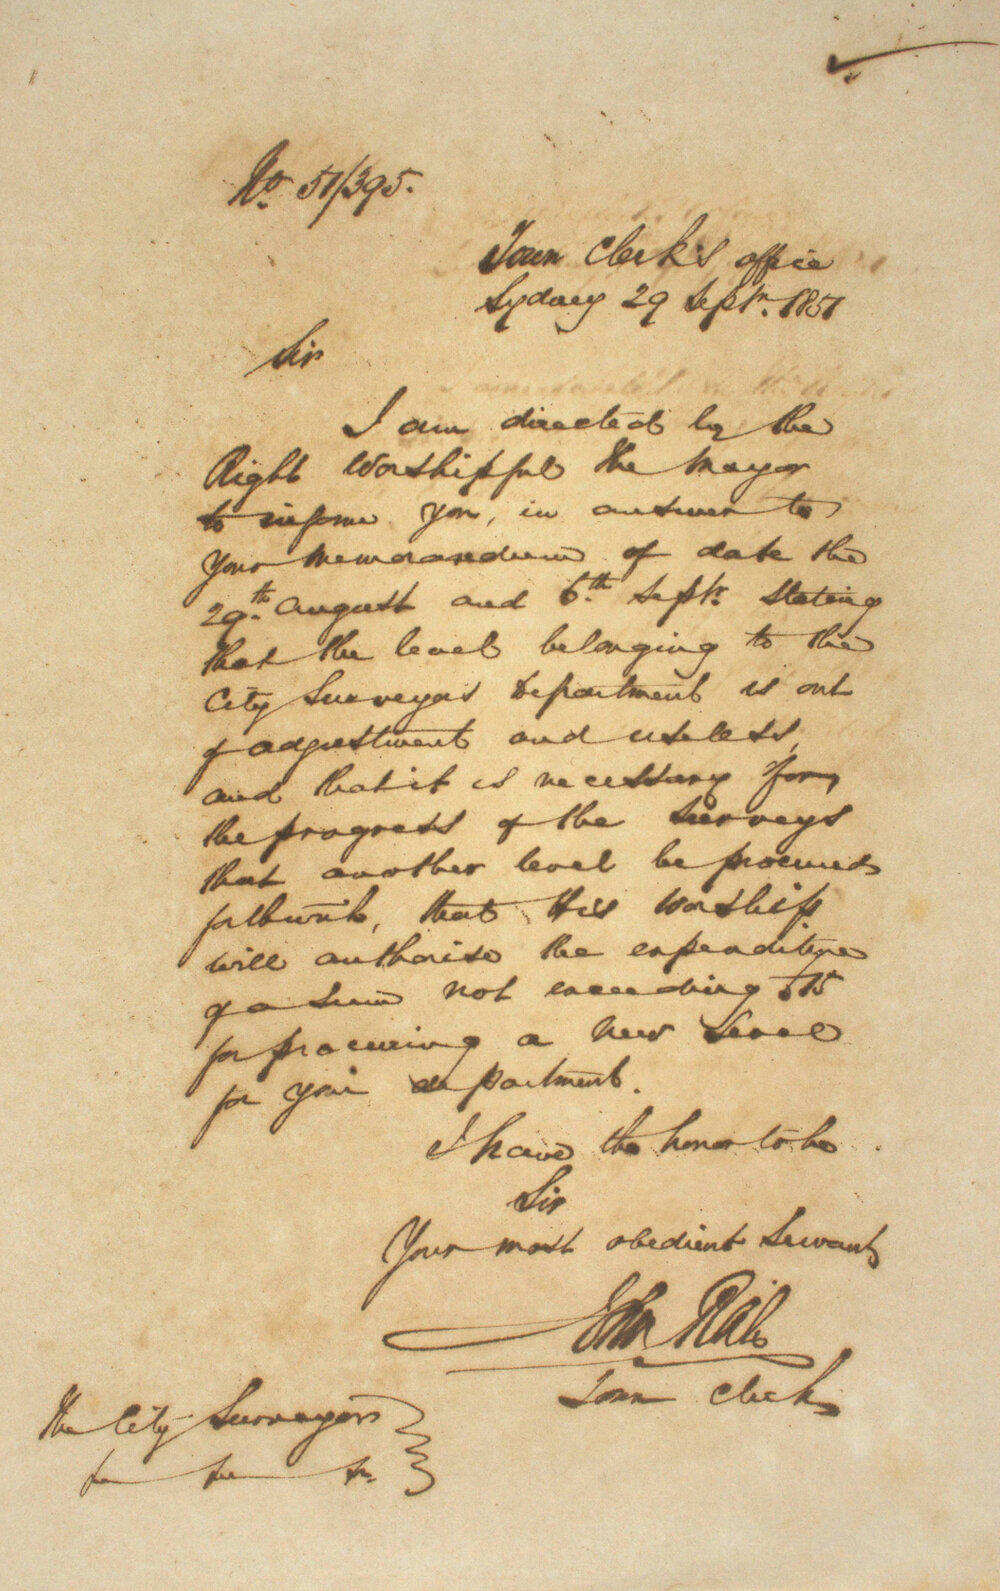 No. 51/395.
Town Clerk's office
Sydney 29 Septr. 1851
Sir
I am directed by the
Right Worshipful the Mayor
to inform you, in answer to
your Memorandum of date the
29th. August and 6th. Septr. stating
that the level belonging to the
City Surveyors Department is out
of adjustment and useless,
and that it is necessary for
the progress of the Surveys
that another level be procured
forthwith, that His Worship
will authorise the expenditure
of a Sum not exceeding £15
for procuring a New Level
for your department.
I have the honor to be
Sir
Your most obedient Servant
John
Town Clerk
The City Surveyor